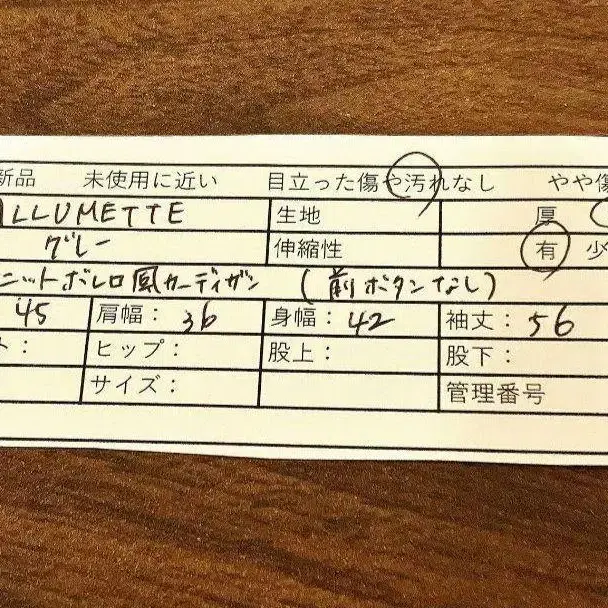 新品 未使用に近い 目立った傷や汚れなし やや傷
ALLUMETTE 生地 厚
グレー 伸縮性 有 少
ニットボレロ風カーディガン (前ボタンなし)
45 肩幅: 36 身幅: 42 袖丈: 56
ト: ヒップ: 股上: 股下:
サイズ: 管理番号